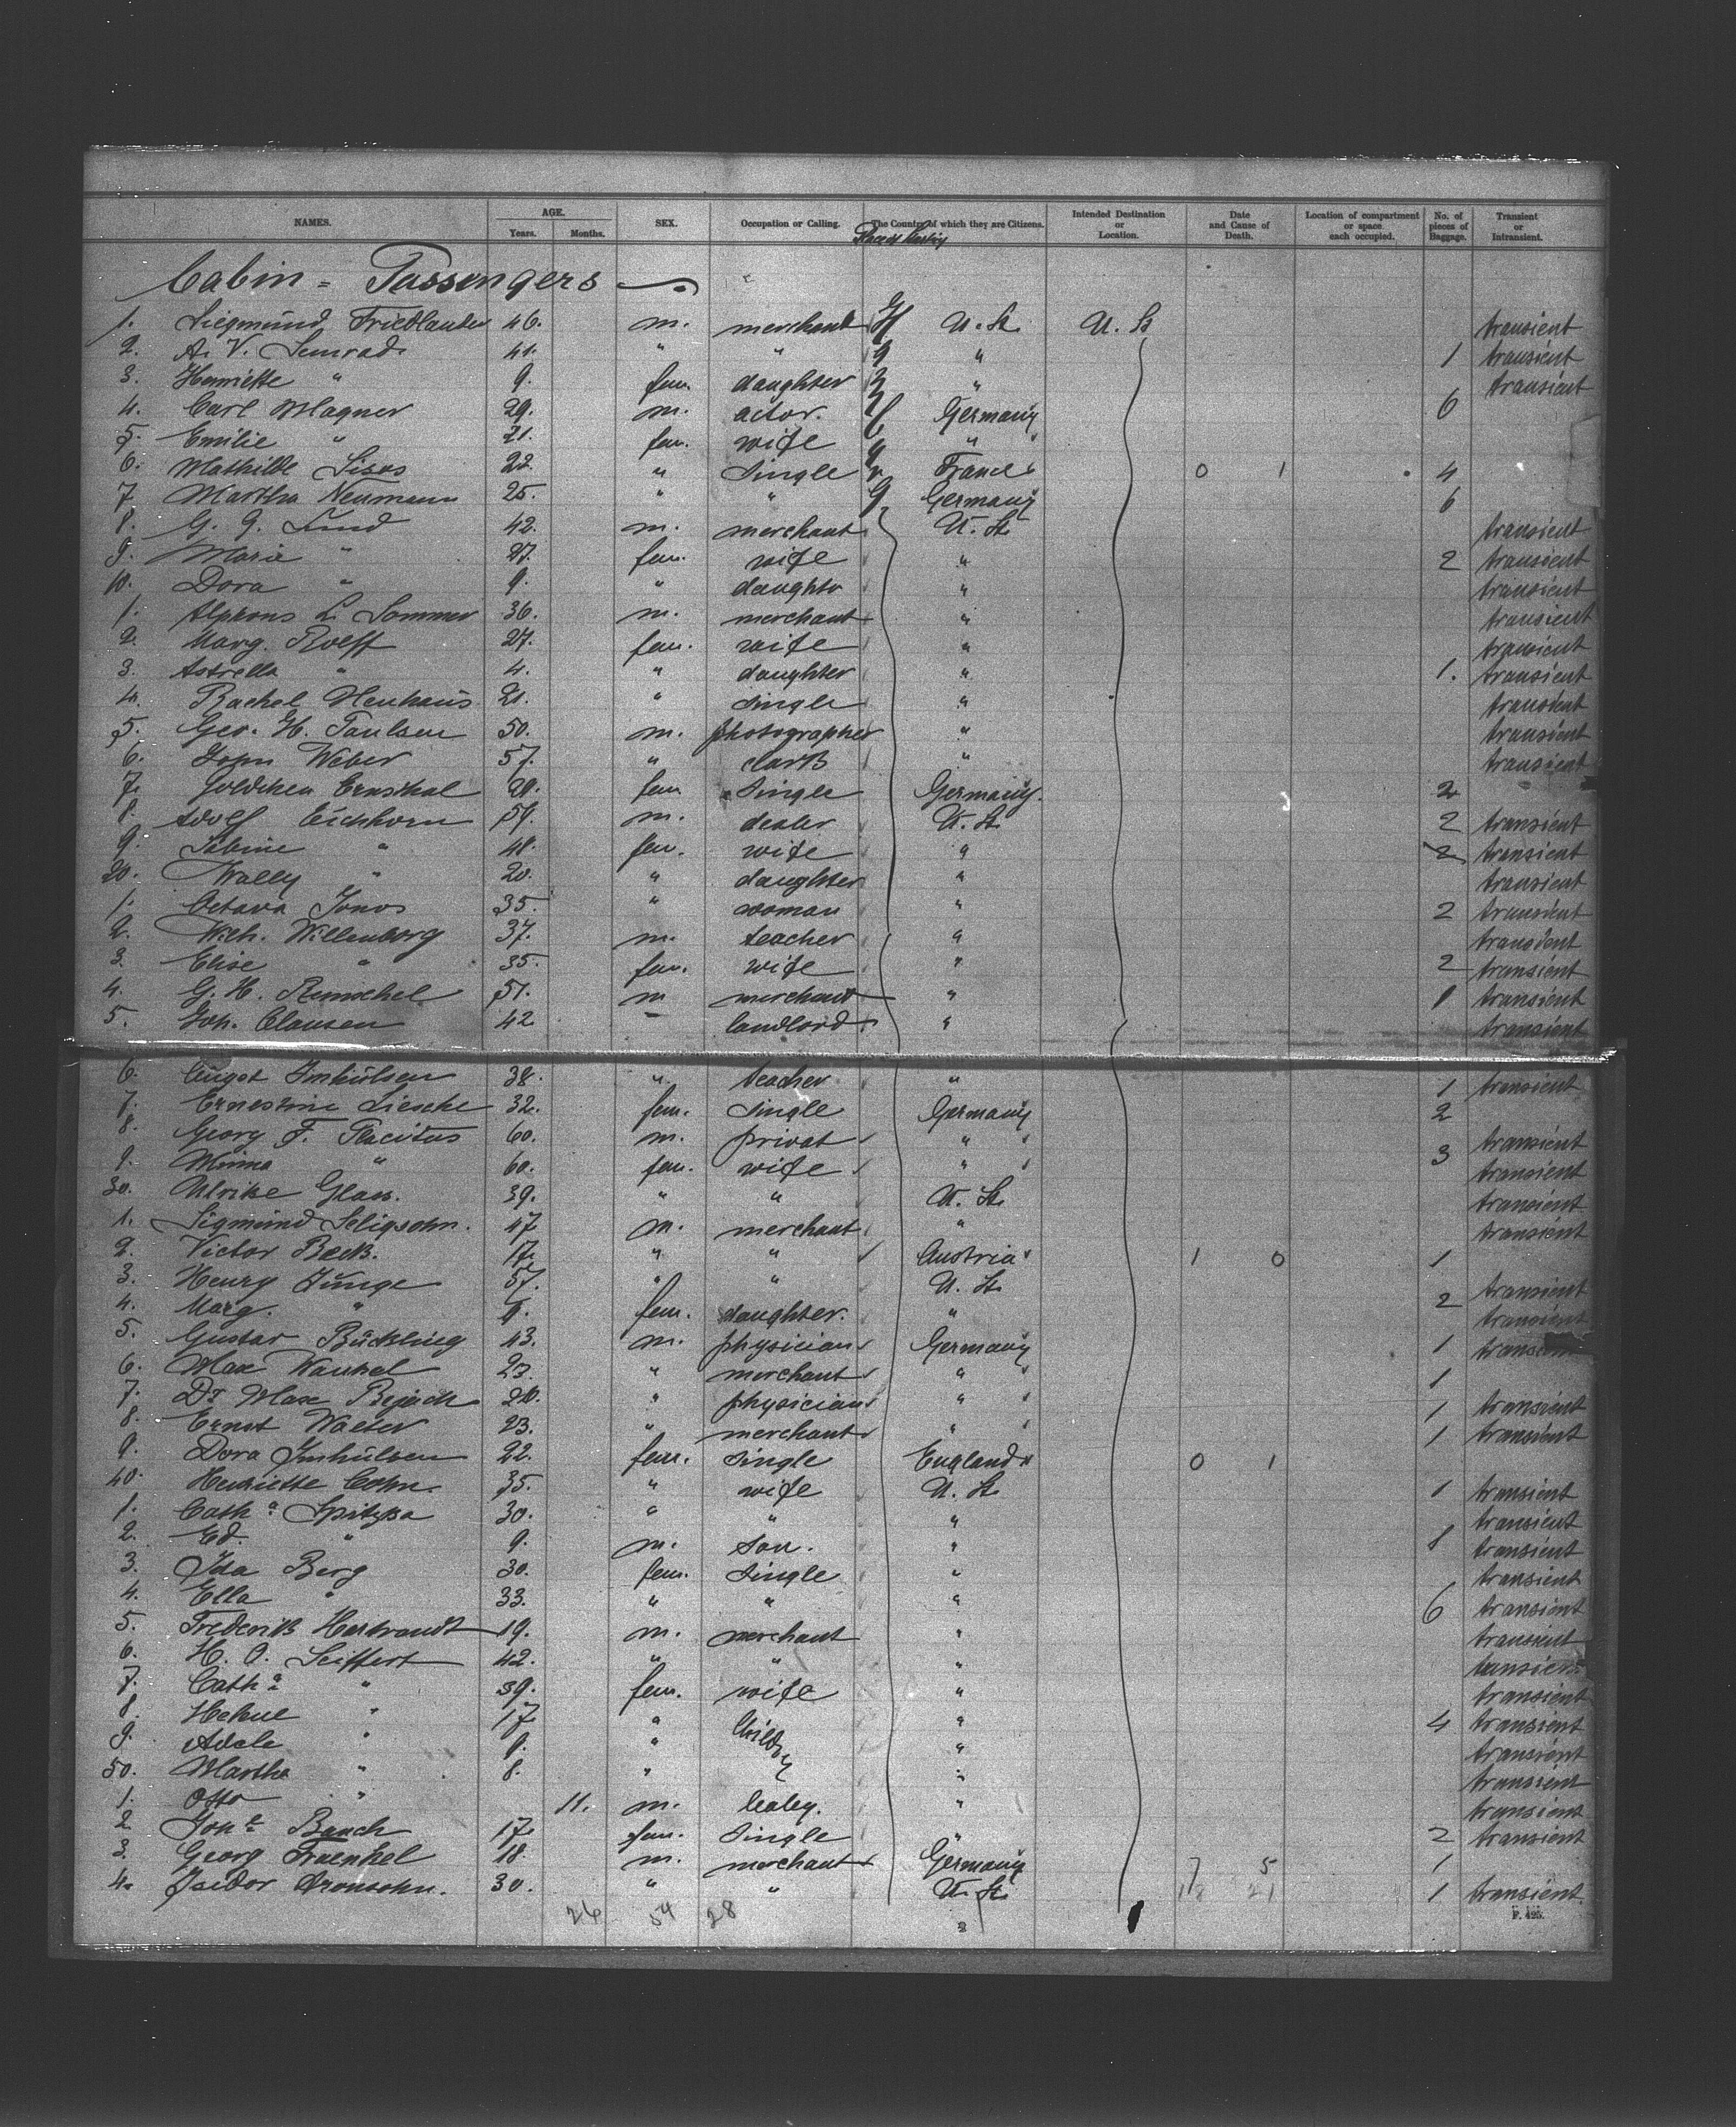 NAMES. AGE. Years. Months. SEX. Occupation or Calling. The Country of which they are Citizens. Intended Destination or Location. Date and Cause of Death. Location of compartment or space each occupied. No. of pieces of Baggage. Transient or Intransient.
Cabin = Passengers
1. Siegmund Friedlander 46. m. merchant U. St. U. St transient
2. A. V. Semrad 41. " " " 1 transient
3. Henriette " 9. fem. daughter " transient
4. Carl Wagner 29. m. actor. Germany 6
5. Emilie " 21. fem. wife "
6. Mathilde 22. " Single France 0 1 4
7. Martha Neumann 25. " " Germany 6
8. G. G. Lund 42. m. merchant U. St. transient
9. Marie " 27. fem. wife " 2 transient
10. Dora " 9. " daughtr " transient
1. Alphons L. Sommer 36. m. merchant " transient
2. Marg. Roeff 27. fem. wife " transient
3. Astrella " 4. " daughter " 1. transient
4. Rachel Neuhaus 21. " single " transient
5. Geo. H. Paulsen 50. m. photographer " transient
6. John Weber 57. " clark " transient
7. Goldchen Ernsthal 20. fem Single Germany. 2
8. Adolf Eichhorn 59. m. dealer U. St. 2 transient
9. Sabine " 48. fem. wife " 2 transient
20. Wally " 20. " daughter " transient
1. Octava Jonos 35. " woman " 2 transient
2. Wilh. Willenborg 37. m. teacher " transient
3. Elise " 35. fem. wife " 2 transient
4. G. H. Renschel 51. m merchant " 1 transient
5. Joh. Clausen 42 landlord " transient
6. August Imhülsen 38. " teacher " 1 transient
7. Ernestine Liesche 32. fem. single Germany 2
8. Georg F. Placitus 60. m. privat " transient
9. Minna " 60. fem. wife " 3 transient
30. Ulrike Glass. 39. " " U. St. transient
1. Sigmund Seligsohn. 47 m. merchant " transient
2. Victor Beck. 17. " " Austria 1 0 1
3. Henry Junge 57. " " U. St. transient
4. Marg. " fem. daughter. " 2 transient
5. Gustav Bückling 43. m. physician Germany 1 transient
6. Max Wankel 23. " merchant " 1
7. Dr Max Bejach " physician " 1 transient
8. Ernst Walter 23. " merchant " 1 transient
9. Dora Imhülsen 22. fem. Single England 0 1
40. Henriette Cohn. 35. " wife U. St. 1 transient
1. Catha. Spitzka 30. " " " transient
2. Ed. " 9. m. son. " transient
3. Ida Berg 30. fem. Single " transient
4. Ella " 33. " " " 6 transient
5. Frederik Herbrandt 19. m. merchant " transient
6. H. O. Seiffert 42. " " " transient
7. Catha. " 39. fem. wife " transient
8. Helene " 17 " Childrn " 4 transient
9. Adele " 9. " " transient
50. Martha " 8. " " transient
1. Otto " 11. m. baby. " transient
2 Johe. Bauch 17. fem. Single " 2 transient
3. Georg Fraenkel 18. m. merchant Germany 7 5 1
4. Isidor Aronsohn. 30. " " U. St. 21 1 transient
26 54 28